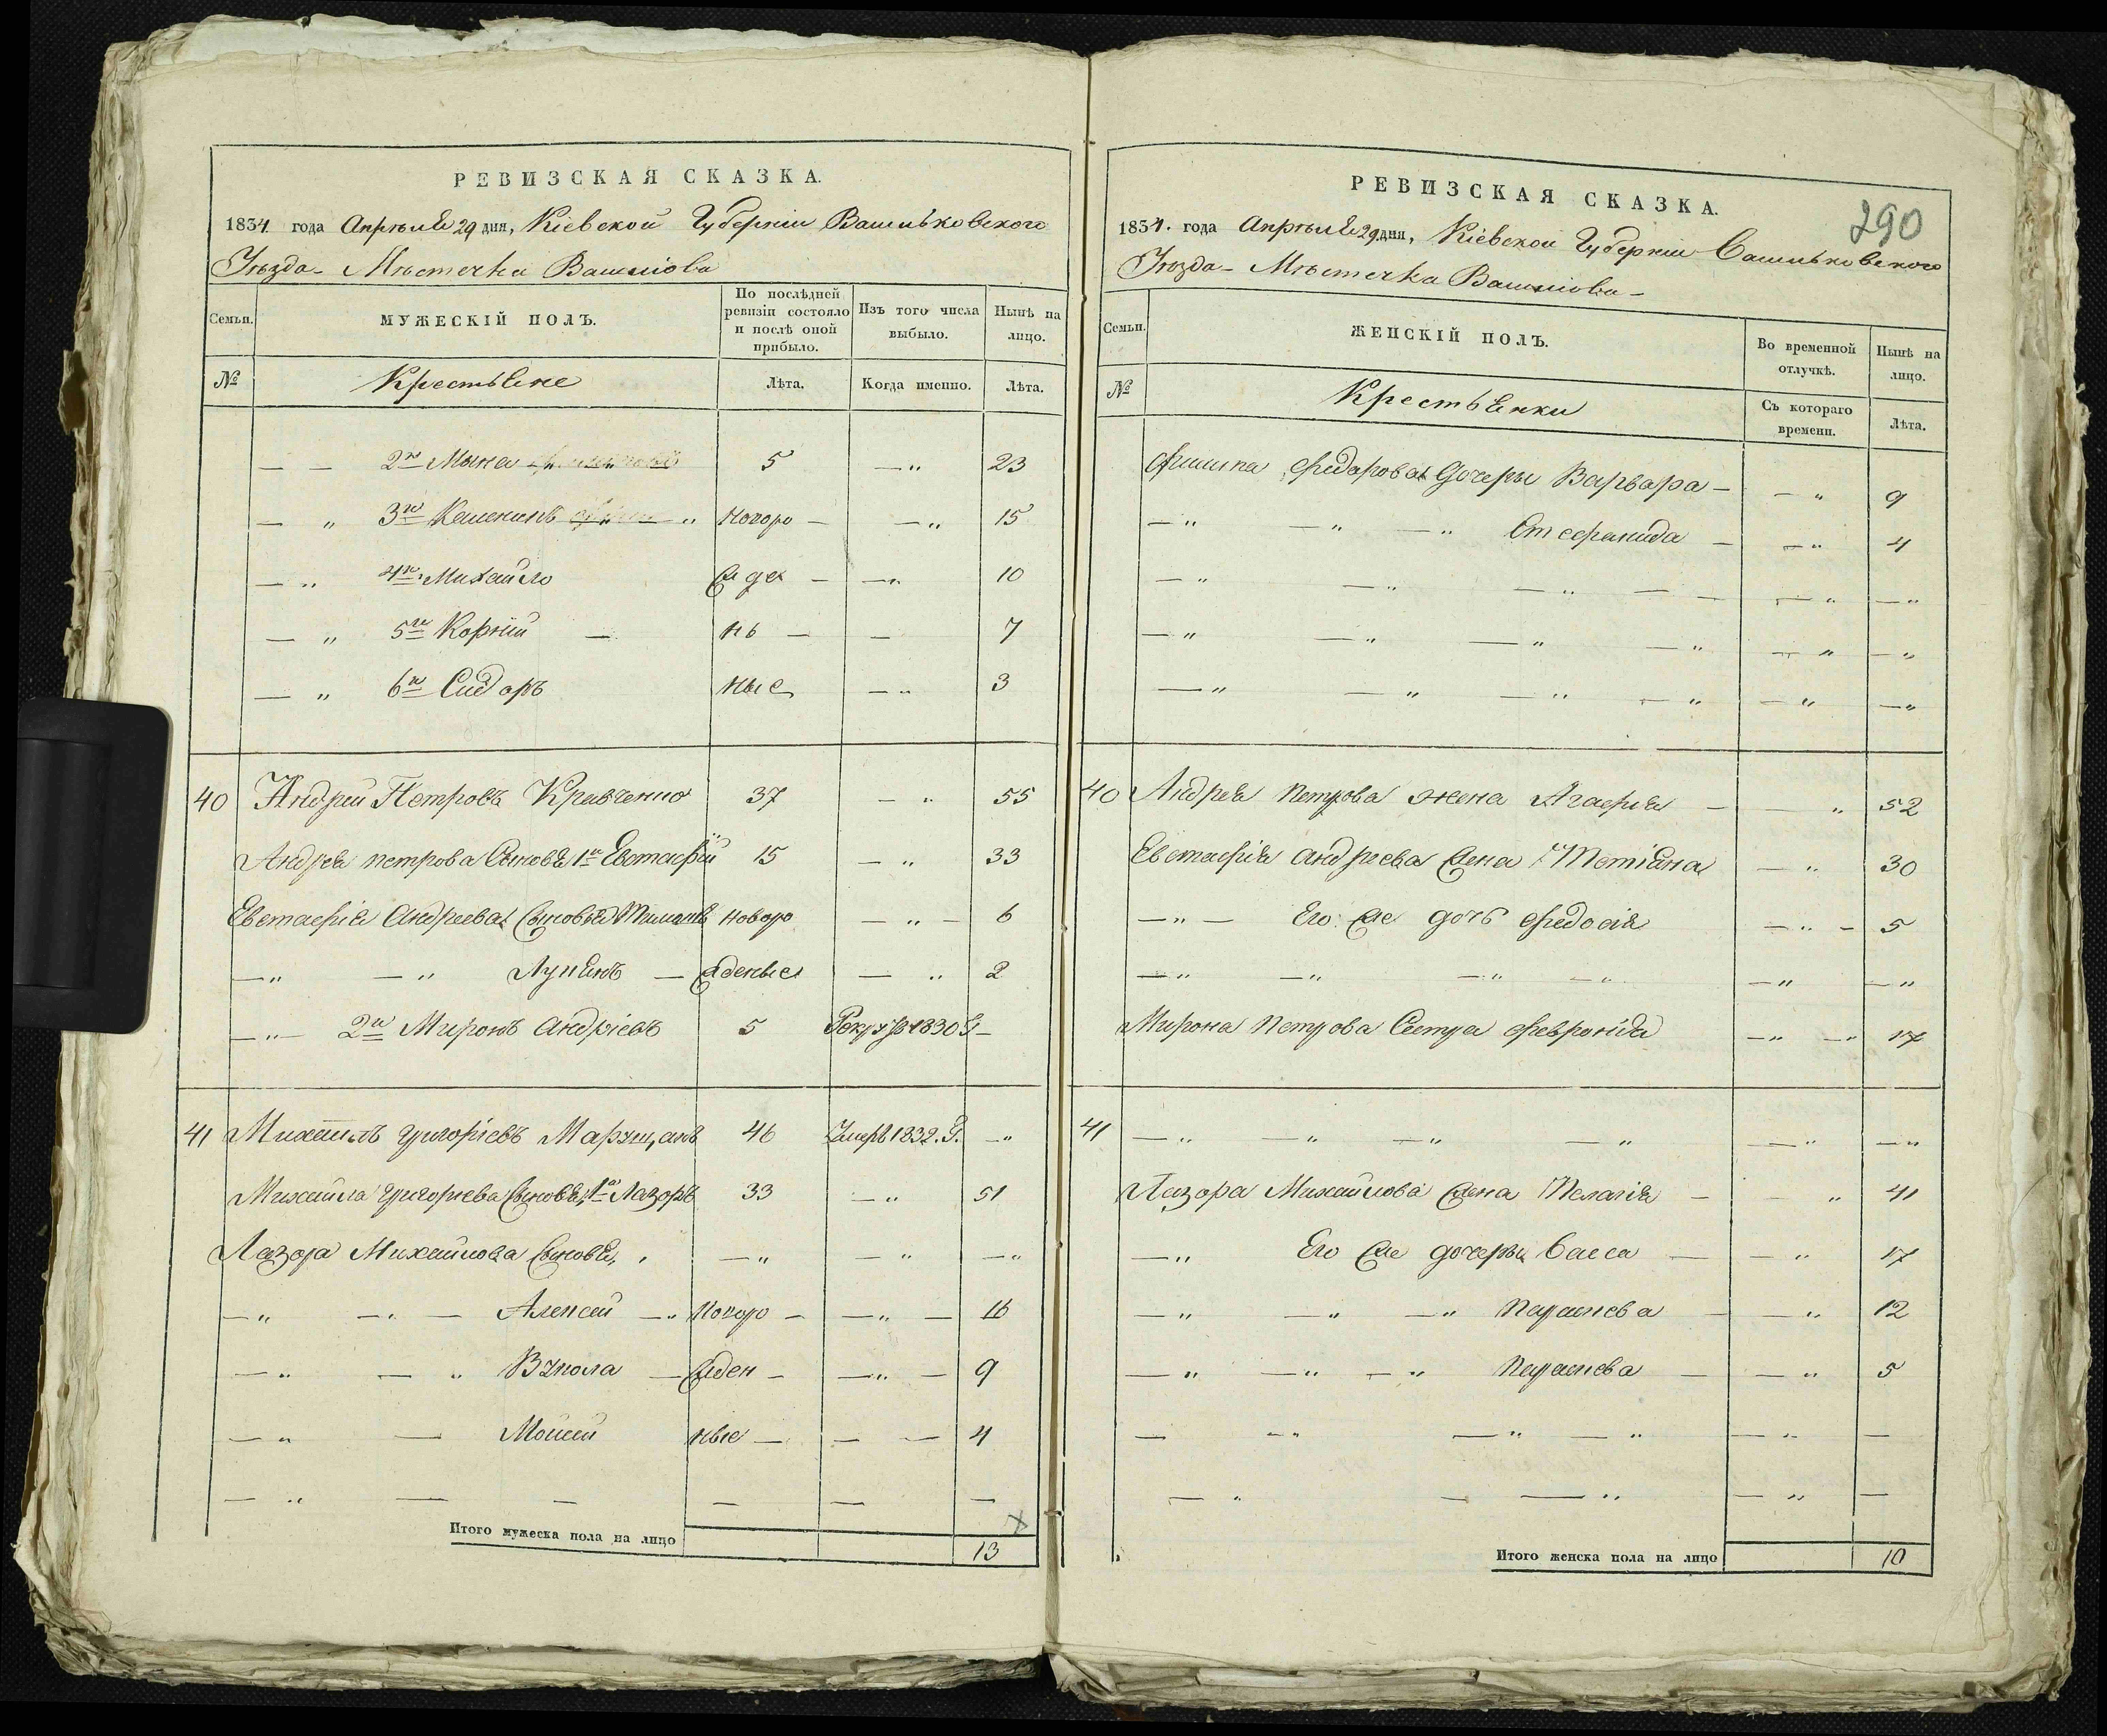 РЕВИЗСКАЯ СКАЗКА.
1834 года Апрѣля 29 дня, Кіевской Губерніи Васильковского
Уѣзда - Мѣстечка
Семьи. МУЖЕСКІЙ ПОЛЪ. По послѣдней ревизіи состояло и послѣ оной прибыло. Изъ того числа выбыло. Нынѣ на лицо.
№ Крестьяне Лѣта. Когда именно. Лѣта.
— — 2й Мына 5 — „ 23
— „ 3й новоро — — „ 15
— „ 4й Михайло жде — — „ 10
— „ 5й Корній — нь — — 7
— „ 6й Сидоръ ные — „ 3
40 Андрей Петровъ Кравченко 37 — „ 55
Андрея петрова Сыновья 1й Евстафій 15 — „ 33
Евстафія Андреева Сыновья новоро — „ — 6
— „ — „ — жденые — „ 2
— „ — 2й Миронъ Андріевъ 5 1830 Г —
41 Михаилъ григоріевъ 46 Умеръ 1832. Г. — „
Михайла григорьева Сыновья, 1й Лазоръ 33 — „ 51
Лазора Михайлова Сыновья, — „ — „ — „
— „ — „ — Алексей — „ новоро — — „ — 16
— „ — „ Вукола — жден — — „ — 9
— „ — Мойсей ные — — — 4
— „ — — — — —
Итого мужеска пола на лицо 13
РЕВИЗСКАЯ СКАЗКА.
290
1834. года Апрѣля 29 дня, Кіевской Губерніи Васильковского
Уѣзда - Мѣстечка
Семьи. ЖЕНСКІЙ ПОЛЪ. Во временной отлучкѣ. Нынѣ на лицо.
№ Крестьянки Съ котораго времени. Лѣта.
Филипа Федорова Дочери Варвара — — „ 9
— „ — „ — „ — — „ 4
— „ — „ — „ — — — „ — „
— „ — „ — „ — „ — „ — „
— „ — „ — „ — „ — „ — „
40 Андрея петрова жена Агафія — — „ 52
Евстафія андреева жена Тетіяна — „ 30
— „ — Его же дочь Федосія — „ — 5
— „ — „ — „ — „ — „ — „
Мирона петрова Сестра Февронія — „ — „ 17
41 — „ — „ — „ — „ — „ — „
Лазора Михайлова жена Пелагія — — „ 41
— „ Его же дочеры Васса — — „ 17
— „ — „ — „ параскева — — „ 12
— „ — „ — „ параскева — — „ 5
— — „ — „ — „ — „ —
— „ — — „ — „ —
Итого женска пола на лицо 10